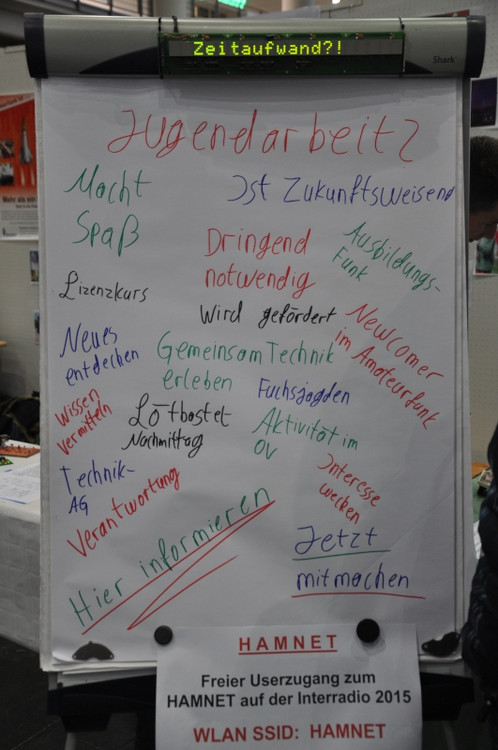 Zeitaufwand?!
Shark
Jugendarbeit?
Macht
Spaß
Ist Zukunftsweisend
Dringend
notwendig
Ausbildungs-
Funk
Lizenzkurs
Wird gefördert
Newcomer
im Amateurfunk
Neues
entdecken
Gemeinsam Technik
erleben
Fuchsjagden
Wissen
vermitteln
Lötbastel
Nachmittag
Aktivität im
OV
Technik-
AG
Interesse
wecken
Verantwortung
Hier informieren
Jetzt
mitmachen
HAMNET
Freier Userzugang zum
HAMNET auf der Interradio 2015
WLAN SSID: HAMNET